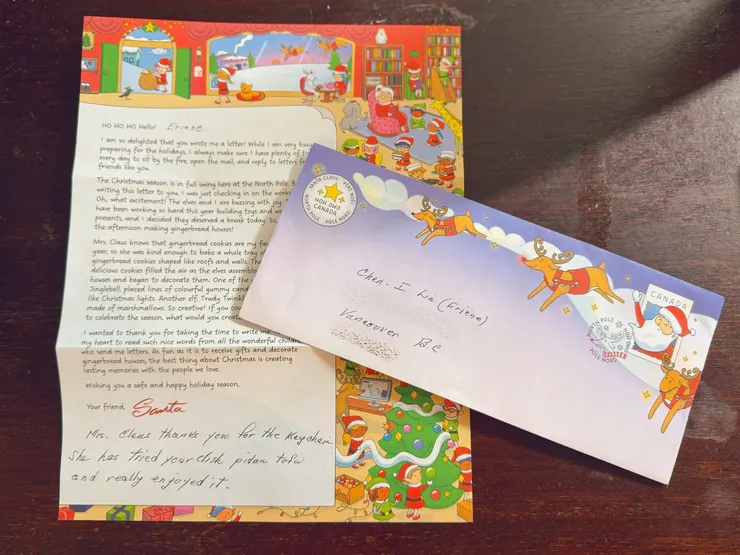 HO HO HO Hello! Erienne
I am so delighted that you wrote me a letter! While I am very busy
preparing for the holidays, I always make sure I have plenty of
every day to sit by the fire, open the mail, and reply to letters
friends like you.
The Christmas season is in full swing here at the North Pole.
writing this letter to you, I was just checking in on the
Oh, what excitement! The elves and I are buzzing with joy.
have been working so hard this year building toys and
presents, and I decided they deserved a break today. So,
the afternoon making gingerbread houses!
Mrs. Claus knows that gingerbread cookies are my
year, so she was kind enough to bake a whole
gingerbread cookies shaped like roofs and walls.
delicious cookies filled the air as the elves
houses and began to decorate them. One of the
Jinglebell, placed lines of colourful gummy
like Christmas lights. Another elf, Trudy
made of marshmallows. So creative! If you
to celebrate the season, what would you
I wanted to thank you for taking the time to write
my heart to read such nice words from all the wonderful
who send me letters. As fun as it is to receive gifts and decorate
gingerbread houses, the best thing about Christmas is creating
lasting memories with the people we love.
Wishing you a safe and happy holiday season.
Your friend, Santa
Mrs. Claus thanks you for the Keychain.
She has tried your dish pidan tofu
and really enjoyed it.
SANTA CLAUS PÈRE NOËL
HOH OHO
CANADA
NORTH POLE PÔLE NORD
Chen. I Lin (Erienne)
Vancouver BC
CANADA
POLE
HOH OHO
PÔLE NORD